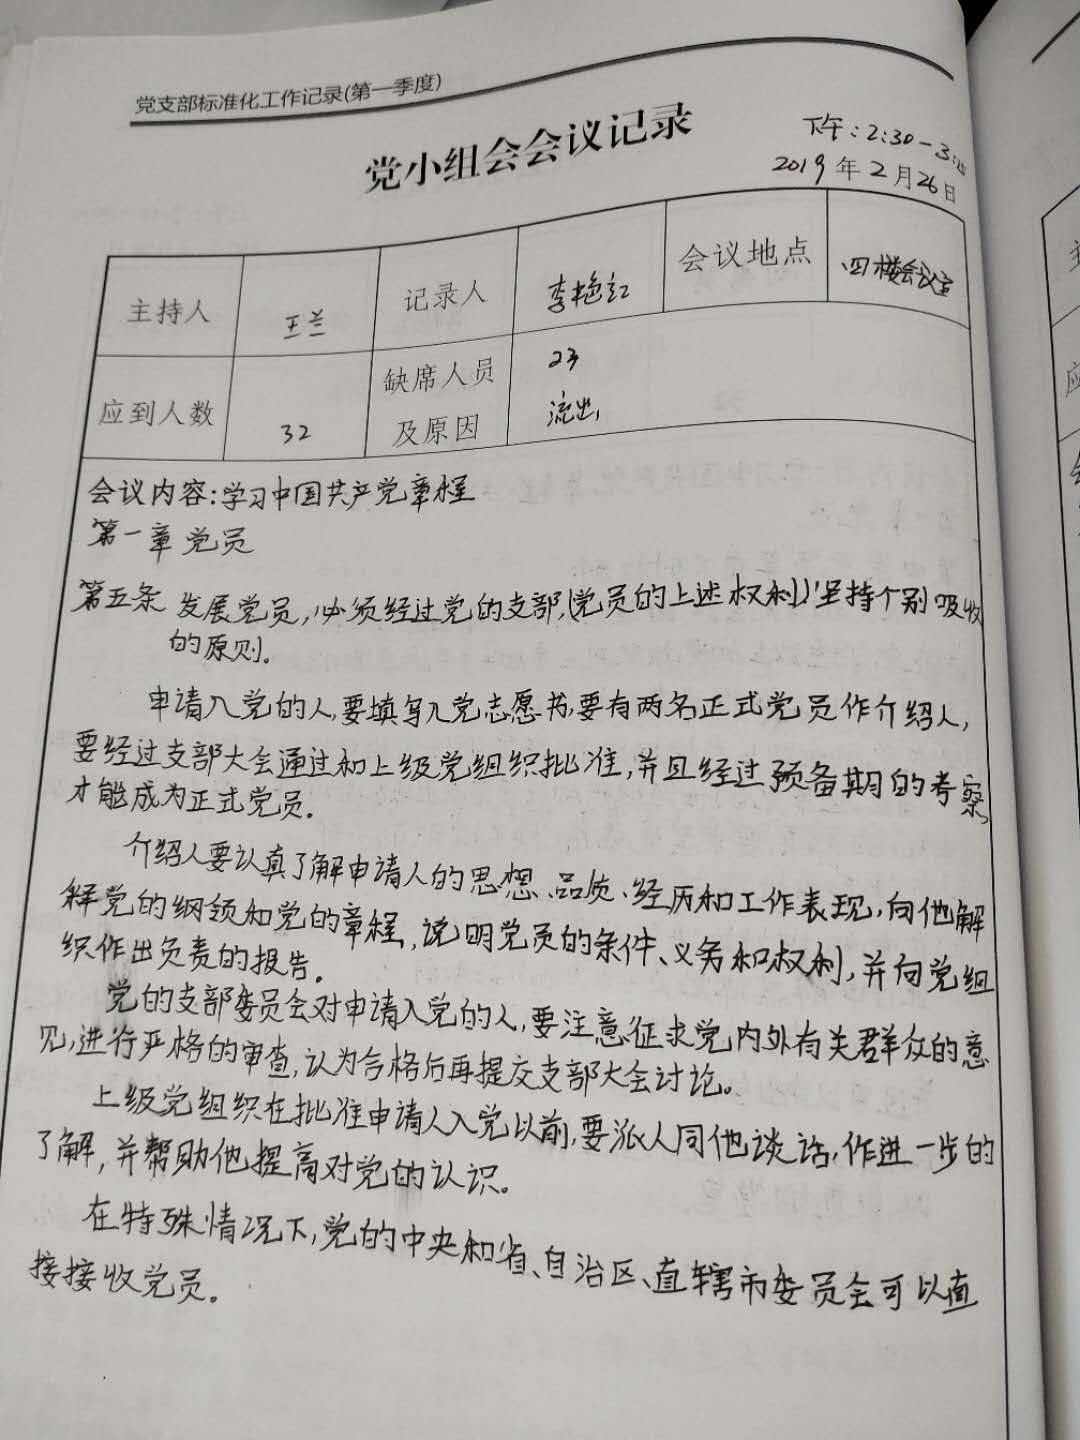 党支部标准化工作记录(第一季度)
党小组会会议记录
下午:2:30-3:
2019年2月26日
主持人 王兰 记录人 李艳红 会议地点 四楼会议室
应到人数 32 缺席人员及原因 23 流出
会议内容:学习中国共产党章程
第一章 党员
第五条 发展党员,必须经过党的支部,(党员的上述权利)坚持个别吸收
的原则。
申请入党的人,要填写入党志愿书,要有两名正式党员作介绍人,
要经过支部大会通过和上级党组织批准,并且经过预备期的考察,
才能成为正式党员.
介绍人要认真了解申请人的思想、品质、经历和工作表现,向他解
释党的纲领和党的章程,说明党员的条件、义务和权利,并向党组
织作出负责的报告。
党的支部委员会对申请入党的人,要注意征求党内外有关群众的意
见,进行严格的审查,认为合格后再提交支部大会讨论。
上级党组织在批准申请人入党以前,要派人同他谈话,作进一步的
了解,并帮助他提高对党的认识。
在特殊情况下,党的中央和省、自治区、直辖市委员会可以直
接接收党员。